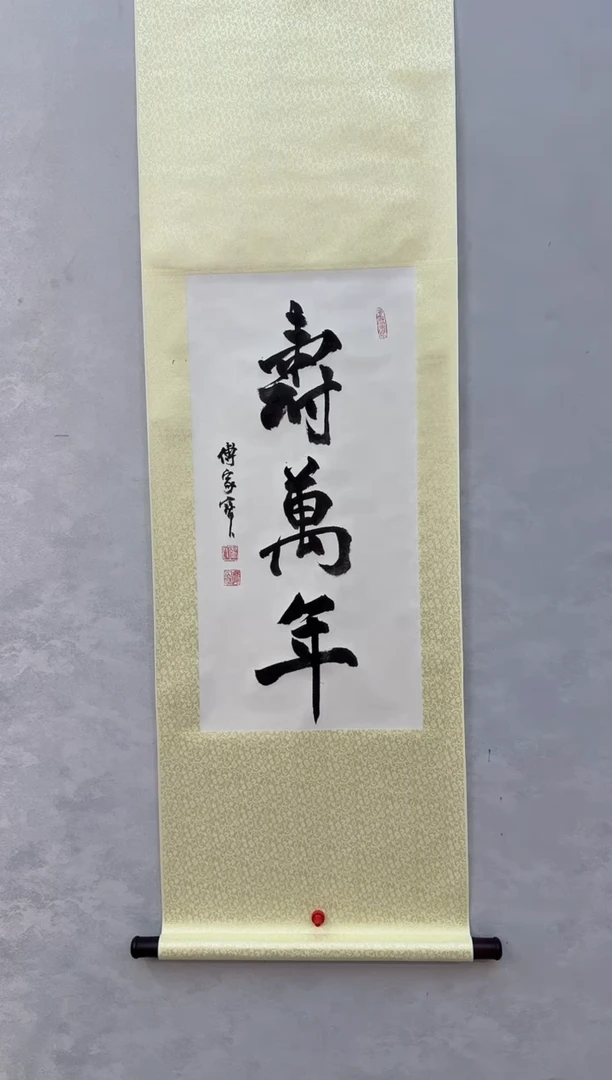 壽萬年
傅家寶